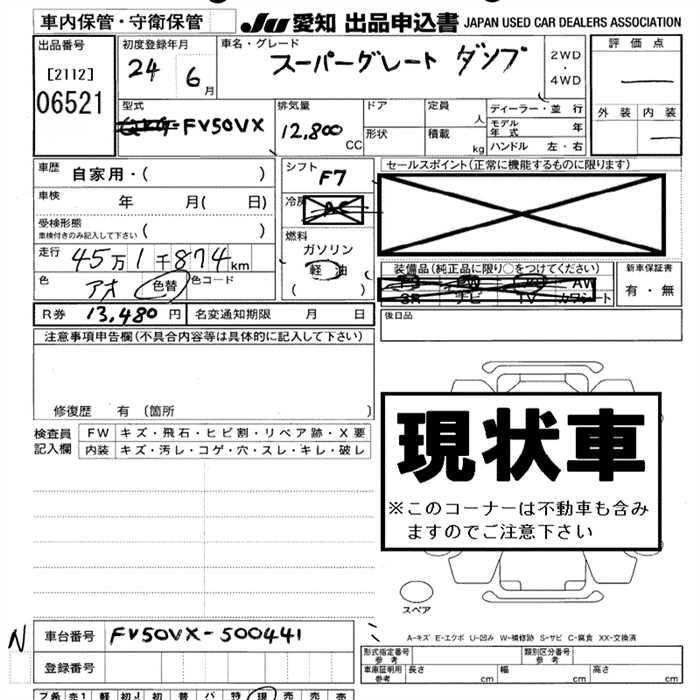 車内保管・守衛保管
JU 愛知 出品申込書 JAPAN USED CAR DEALERS ASSOCIATION
出品番号
[2112]
06521
初度登録年月
24 6月
車名・グレード
スーパーグレート ダンプ
2WD
・
4WD
評価点
外装 内装
型式
FV50VX
排気量
12,800 CC
ドア
形状
定員 人
積載 kg
ディーラー・並行
モデル年式 年
ハンドル 左・右
車歴
自家用・( )
車検
年 月( 日)
受検形態
車検付きのみ記入して下さい
( )
走行
45万1千874km
色
アオ 色替 色コード
シフト
F7
冷房
AC
燃料
ガソリン
軽油
( )
セールスポイント(正常に機能するものに限ります)
装備品(純正品に限り○をつけてください)
AW
SR ナビ TV カワシート
新車保証書
有・無
後日品
R券 13,480 円 名変通知期限 月 日
注意事項申告欄(不具合内容等は具体的に記入して下さい)
修復歴 有 〔箇所 〕
検査員記入欄
FW キズ・飛石・ヒビ割・リペア跡・X要
内装 キズ・汚レ・コゲ・穴・スレ・キレ・破レ
現状車
※このコーナーは不動車も含み
ますのでご注意下さい
スペア
A-キズ E-エクボ U-凹み W-補修跡 S-サビ C-腐食 XX-交換済
N
車台番号 FV50VX-500441
登録番号
形式指定番号 参考
類別区分番号 参考
車庫証明用 参考 長さ cm 幅 cm 高さ cm